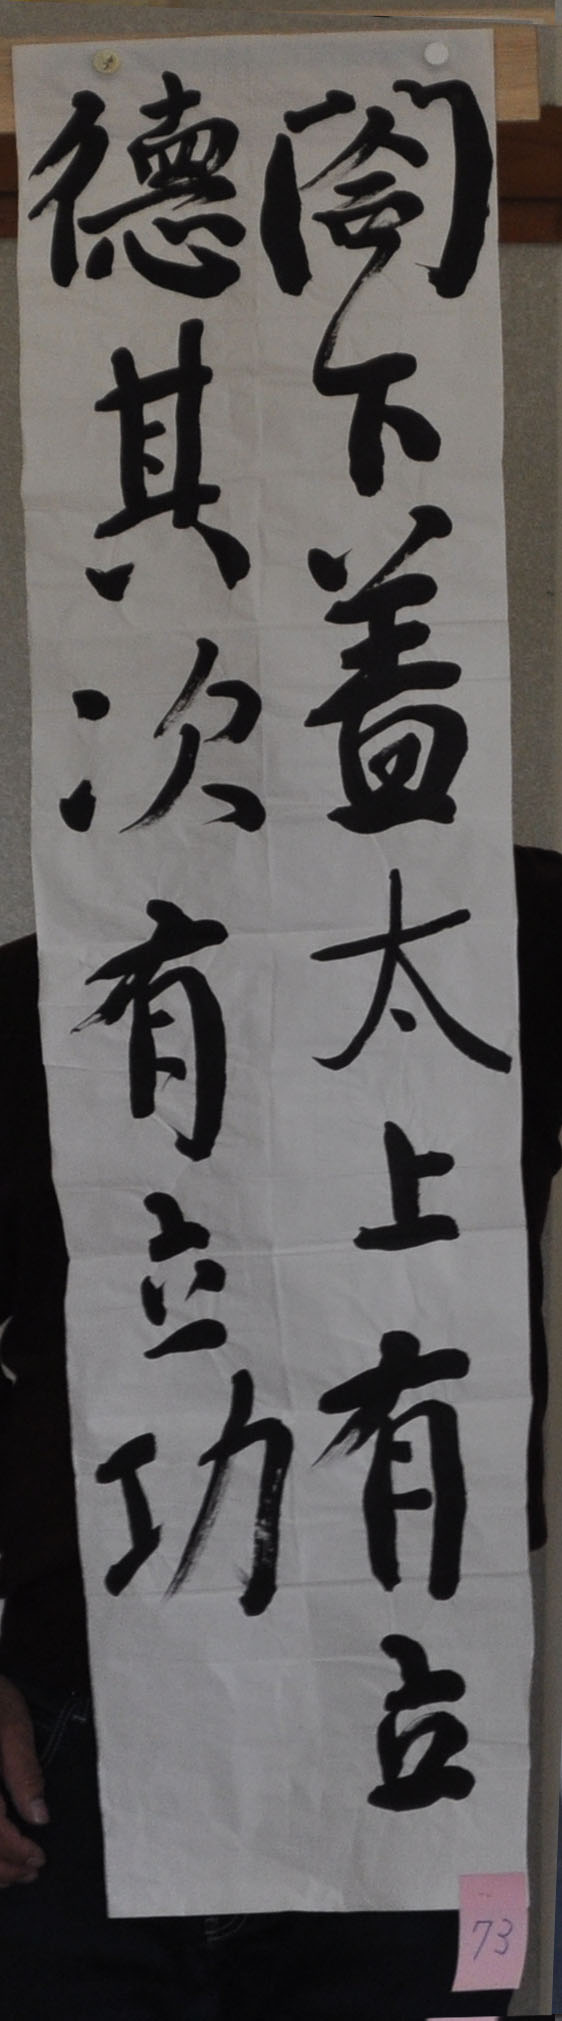 閤下蓋太上有立
德其次有立功
73